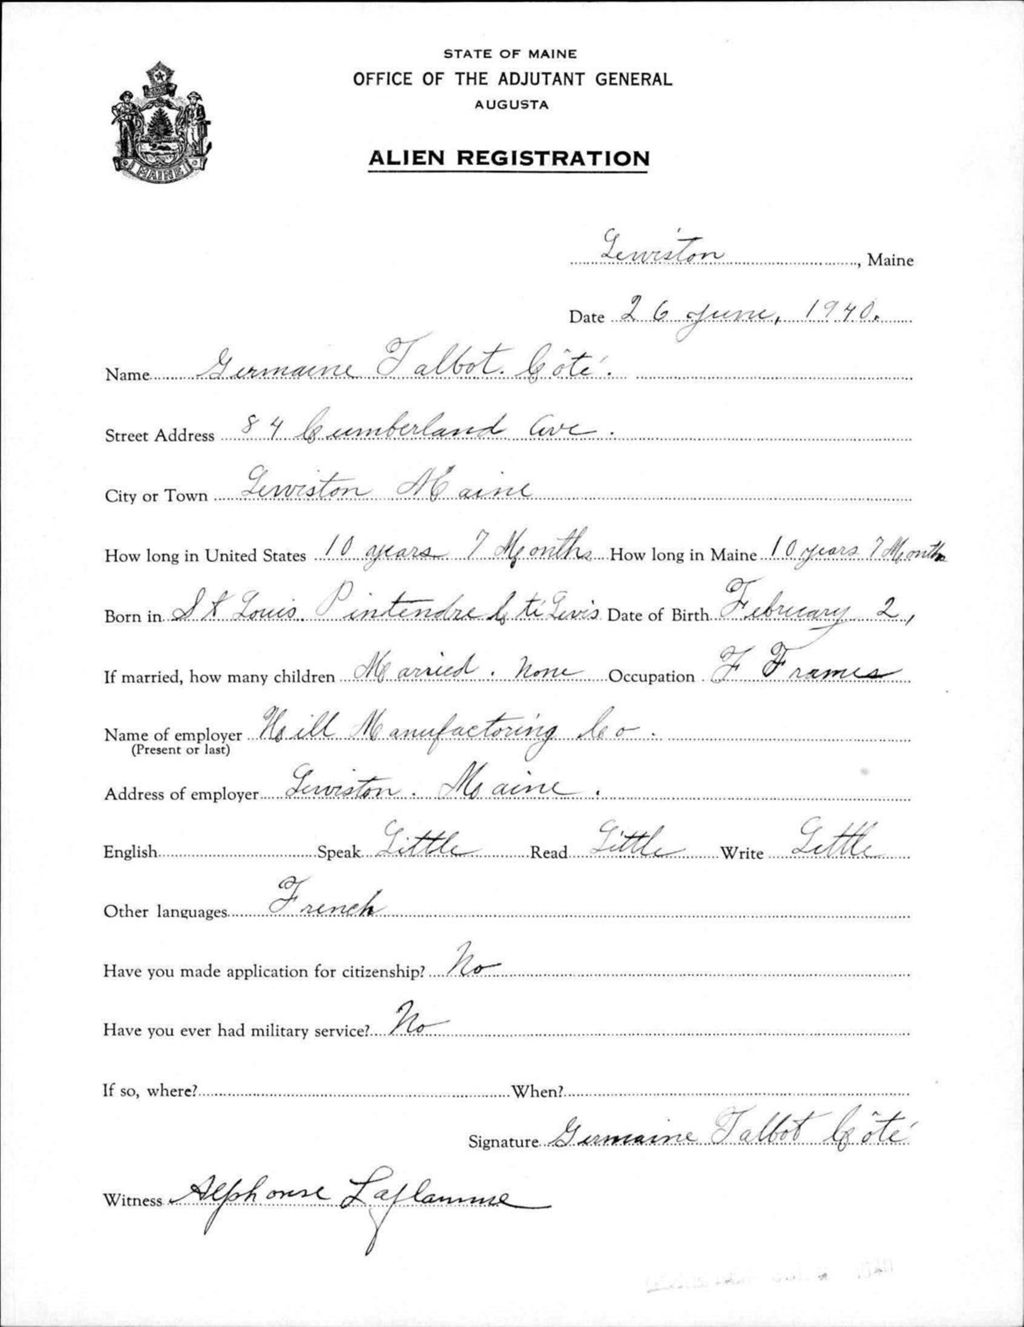 STATE OF MAINE
OFFICE OF THE ADJUTANT GENERAL
AUGUSTA
ALIEN REGISTRATION
MAINE
Lewiston, Maine
Date 26 June, 1940.
Name Germaine Talbot Côté.
Street Address 84 Cumberland Ave.
City or Town Lewiston Maine
How long in United States 10 years 7 Months How long in Maine 10 years 7 Months
Born in St Louis. Pintendre Cté Levis Date of Birth February 2,
If married, how many children Married. None Occupation F Frames
Name of employer Hill Manufactoring Co.
(Present or last)
Address of employer Lewiston. Maine.
English Speak Little Read Little Write Little
Other languages French
Have you made application for citizenship? No
Have you ever had military service? No
If so, where? When?
Signature Germaine Talbot Côté
Witness Alphonse Laflamme